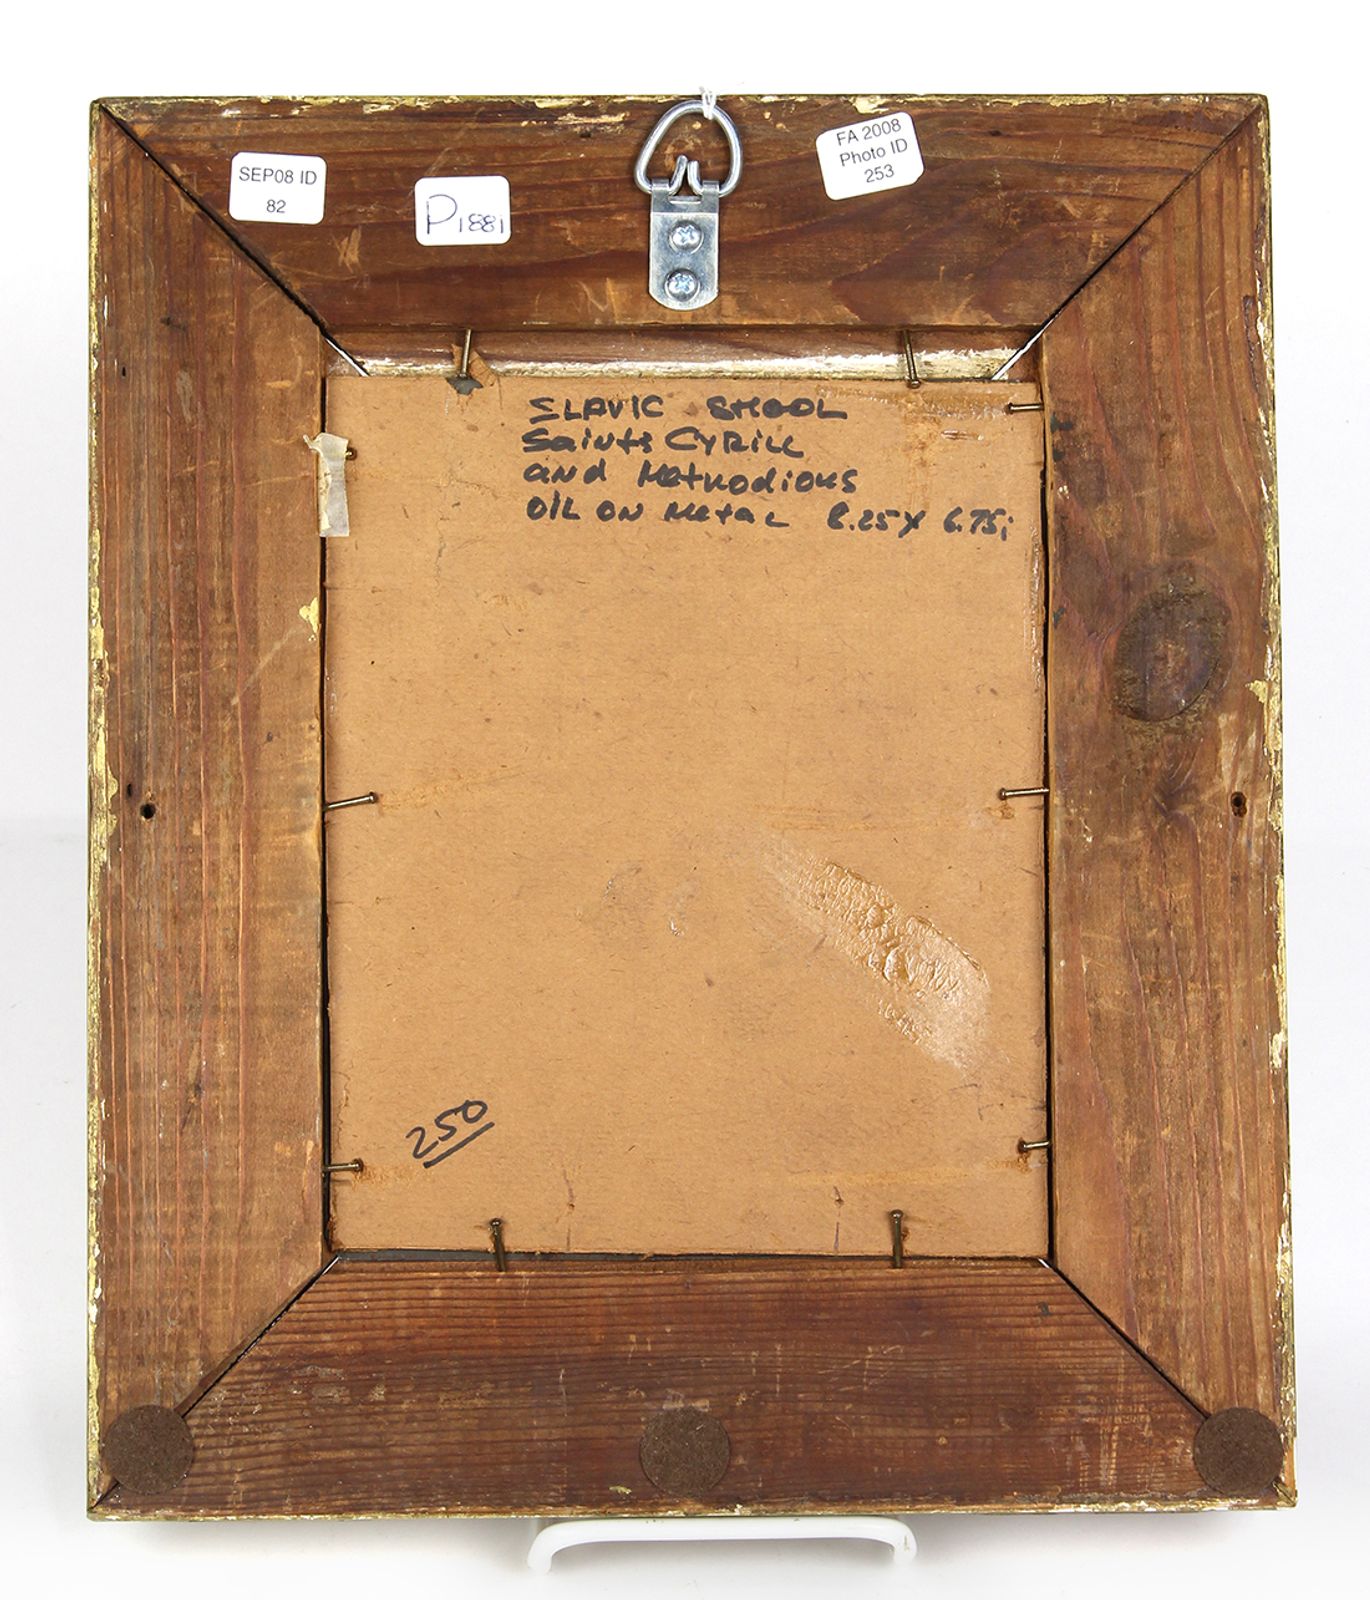 SEP08 ID
82
P1881
FA 2008
Photo ID
253
SLAVIC SHOOL
Saints CYRILL
and Methodious
OIL ON Metal 8.25 X 6.75i
250